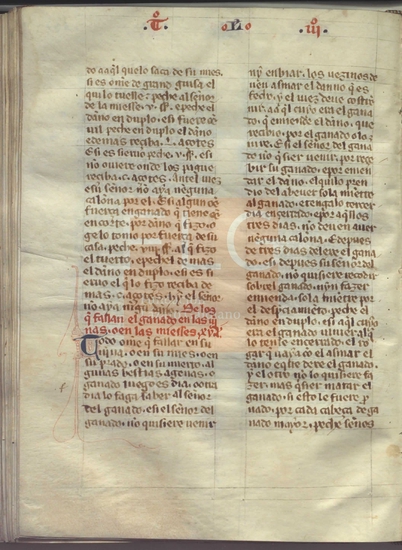 T. Lo. iii.
do a aql quelo saca de su mies.
si es ome de grand guisa el
quilo tuelle: peche al señor
de la miesse. v. ss. e peche el
daño en duplo. e si fuere
uil peche en duplo el daño
e demas reciba. L. açotes
E si es sieruo peche. ss. e si
no ouiere onde los pague
reciba. c. açotes. antel iuez
e su señor. no aya neguna
calonna por el. E si algun ome
fuerça en ganado que tiene
en corte. por daño q fizo. o
gelo tomo por fuerça de su
casa. peche. ss. al q fizo
el tuerto. e peche de mas
el daño en duplo. e si es si
eruo el q lo fizo reciba de
mas. c. açotes. e el señor
no aya nigun daño. De los
q fallan el ganado en las ui
nas. o en las miesses.
Todo ome q fallar en su
uina. o en su mies. o en
su prado. o en su uerto. al
gunas bestias agenas. o
ganado luego es dia. o otra
dia lo faga saber al señor
del ganado. e si el señor del
ganado. no quisiere uenir
ny enbiar. los uezinos de
uen asmar el danno q es
fecho. y el iuez deue costre
nir. a aql cuyo era el gana
do. q emiende el daño. que
recibio. por el ganado o lo
E si el señor del gana
do no q sier uenir. por rece
bir su ganado. e por emen
dar el daño. el qui lo pren
dio del a beuer sola miente
al ganado. e tengalo tercer
dia encerrado. e por aqllos
tres dias. no deuen auer
neguna calonna. E depues
de tres dias dexe el gana
do. e si depues su señor del
ganado. no quisiere recebir
sobrel ganado. nyn fazer
emienda. sola miente por
el despreciamiento. peche el
daño en duplo. e si aql cuyo
era el ganado uiniere al q
lo tenie encerrado. el ro
gar q uaya co el asmar el
danno e qle dexe el ganado.
y el otro no lo quisiere fa
zer. mas q sier matar el
ganado. si esto le fuere p
uado. por cada cabeça de ga
nado mayor. peche señor